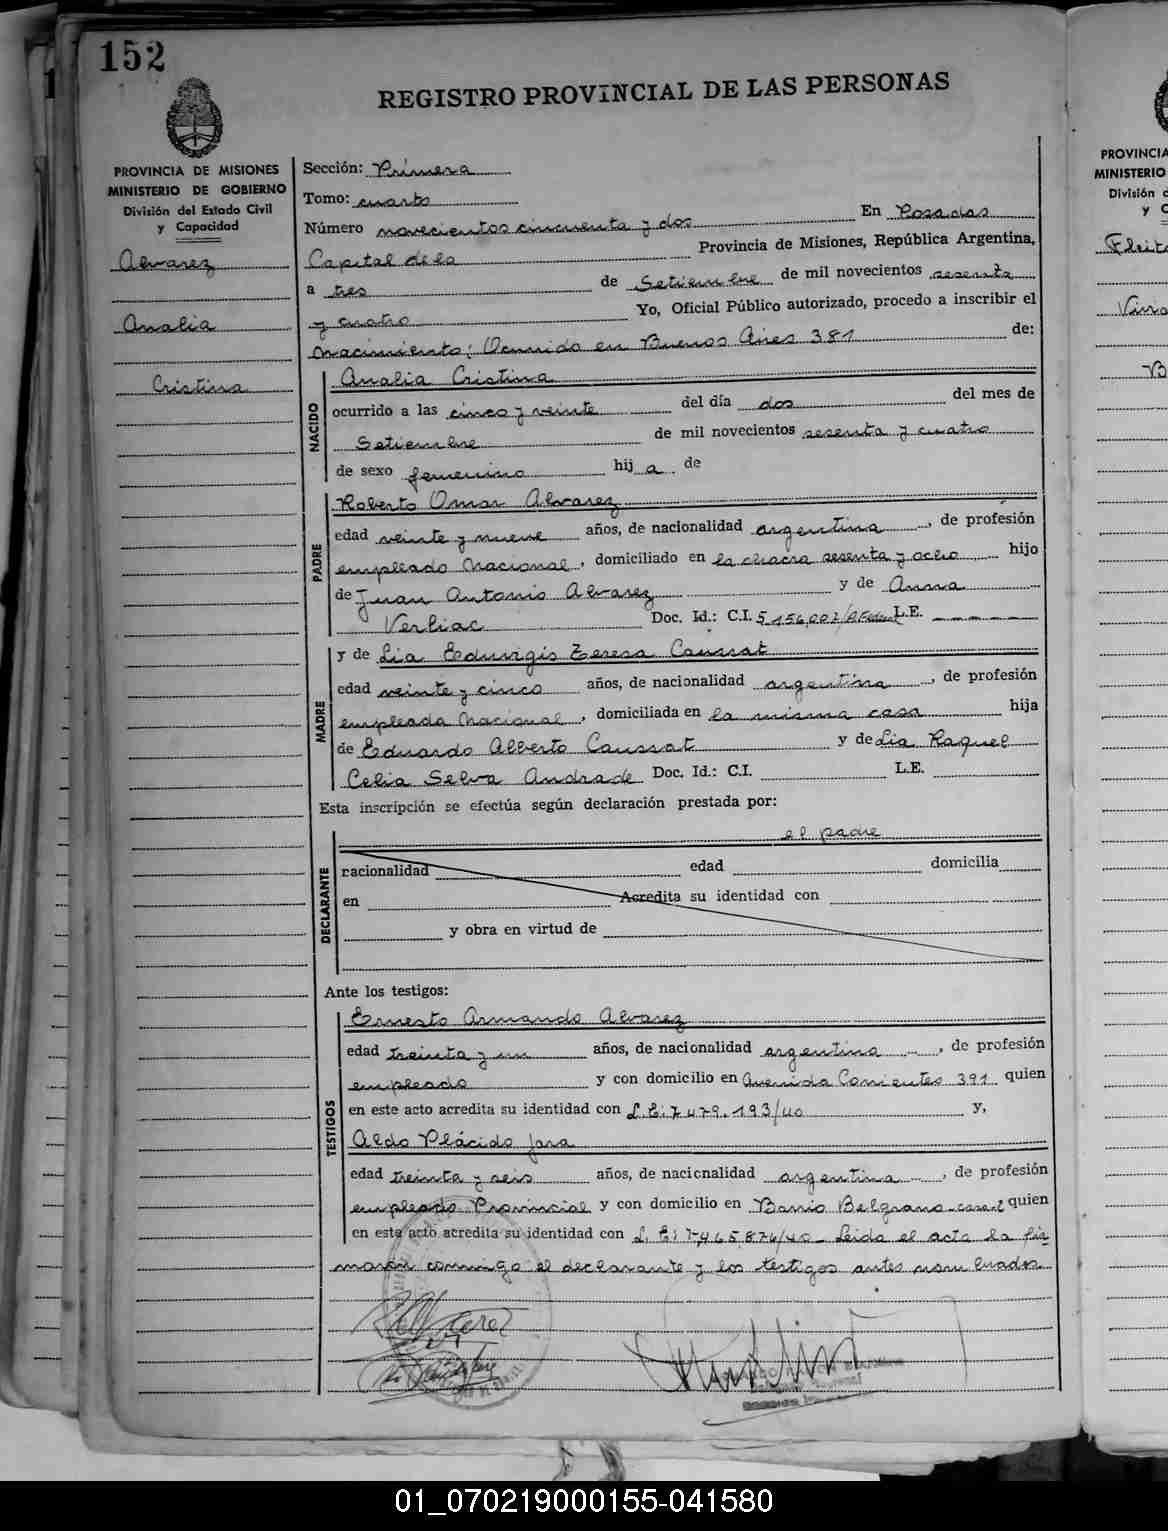 152
REGISTRO PROVINCIAL DE LAS PERSONAS
PROVINCIA DE MISIONES
MINISTERIO DE GOBIERNO
División del Estado Civil
y Capacidad
Alvarez
Analia
Cristina
Sección: Primera
Tomo: cuarto
Número novecientos cincuenta y dos En Posadas
Capital de la Provincia de Misiones, República Argentina,
a tres de Setiembre de mil novecientos sesenta
y cuatro Yo, Oficial Público autorizado, procedo a inscribir el
nacimiento: Ocurrido en Buenos Aires 381 de:
NACIDO
Analia Cristina
ocurrido a las cinco y veinte del día dos del mes de
Setiembre de mil novecientos sesenta y cuatro
de sexo femenino hij a de
PADRE
Roberto Omar Alvarez
edad veinte y nueve años, de nacionalidad argentina, de profesión
empleado Nacional, domiciliado en la chacra sesenta y ocho hijo
de Juan Antonio Alvarez y de Anna
Verliac Doc. Id.: C.I. 5.156.007/P.Federal L.E. - - - - - -
MADRE
y de Lia Eduvigis Teresa Caussat
edad veinte y cinco años, de nacionalidad argentina, de profesión
empleada Nacional, domiciliada en la misma casa hija
de Eduardo Alberto Caussat y de Lia Raquel
Celia Selva Andrade Doc. Id.: C.I. L.E.
Esta inscripción se efectúa según declaración prestada por:
el padre
DECLARANTE
nacionalidad edad domicilia
en Acredita su identidad con
y obra en virtud de
Ante los testigos:
TESTIGOS
Ernesto Armando Alvarez
edad treinta y un años, de nacionalidad argentina, de profesión
empleado y con domicilio en Avenida Corrientes 391 quien
en este acto acredita su identidad con L.E: 7.479.193/40 y,
Aldo Plácido Jara
edad treinta y seis años, de nacionalidad argentina, de profesión
empleado Provincial y con domicilio en Barrio Belgrano - quien
en este acto acredita su identidad con L.E: 7.465.876/40 - Leida el acta la fir
maron conmigo el declarante y los testigos antes nombrados
PROVINCIA
MINISTERIO
División d
y C
01_070219000155-041580